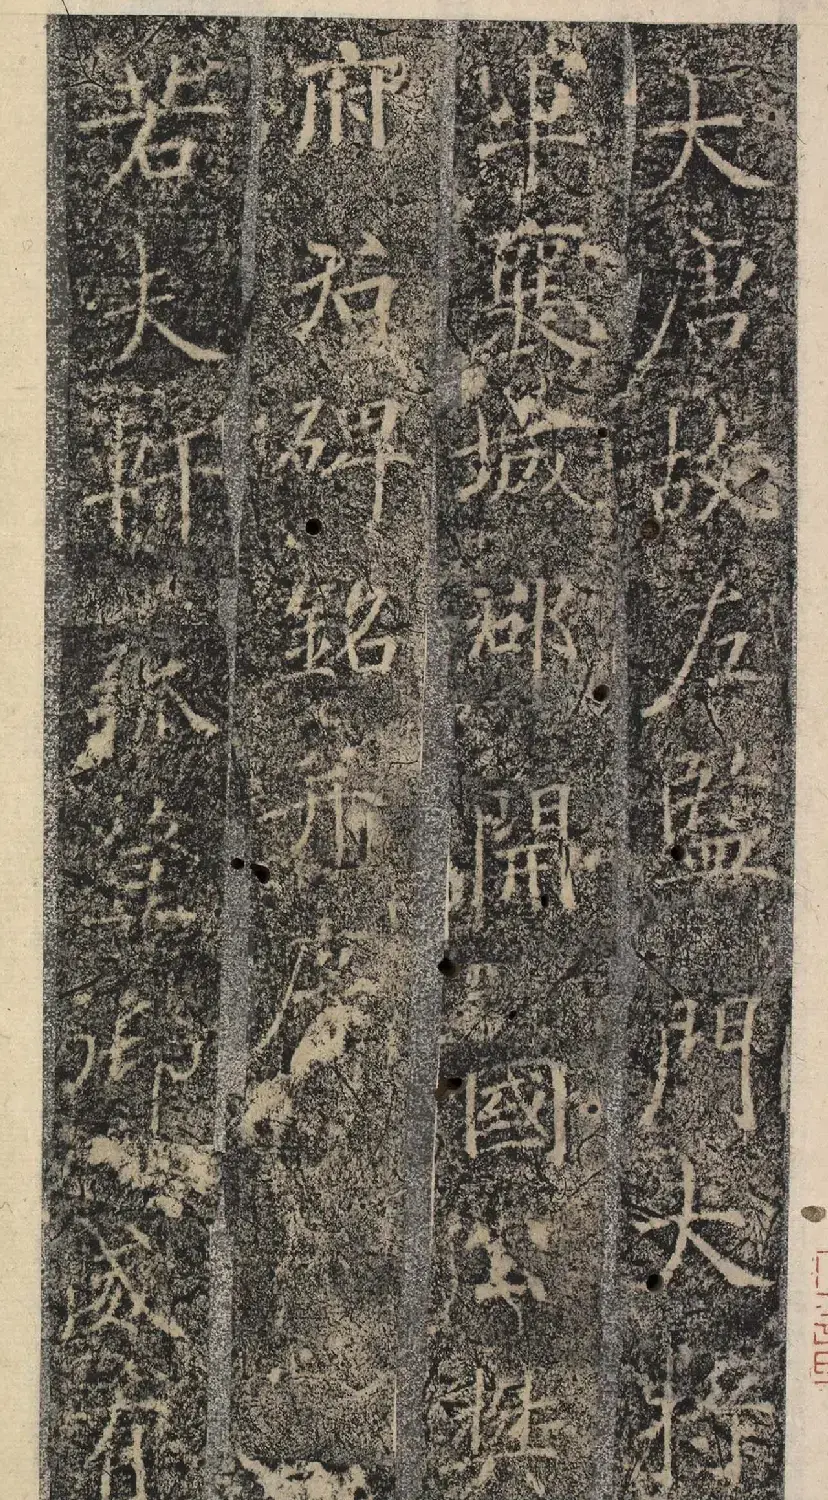 大唐故左監門大將
軍襄城郡開國公樊
府君碑銘并序
若夫軒弧望御咸有